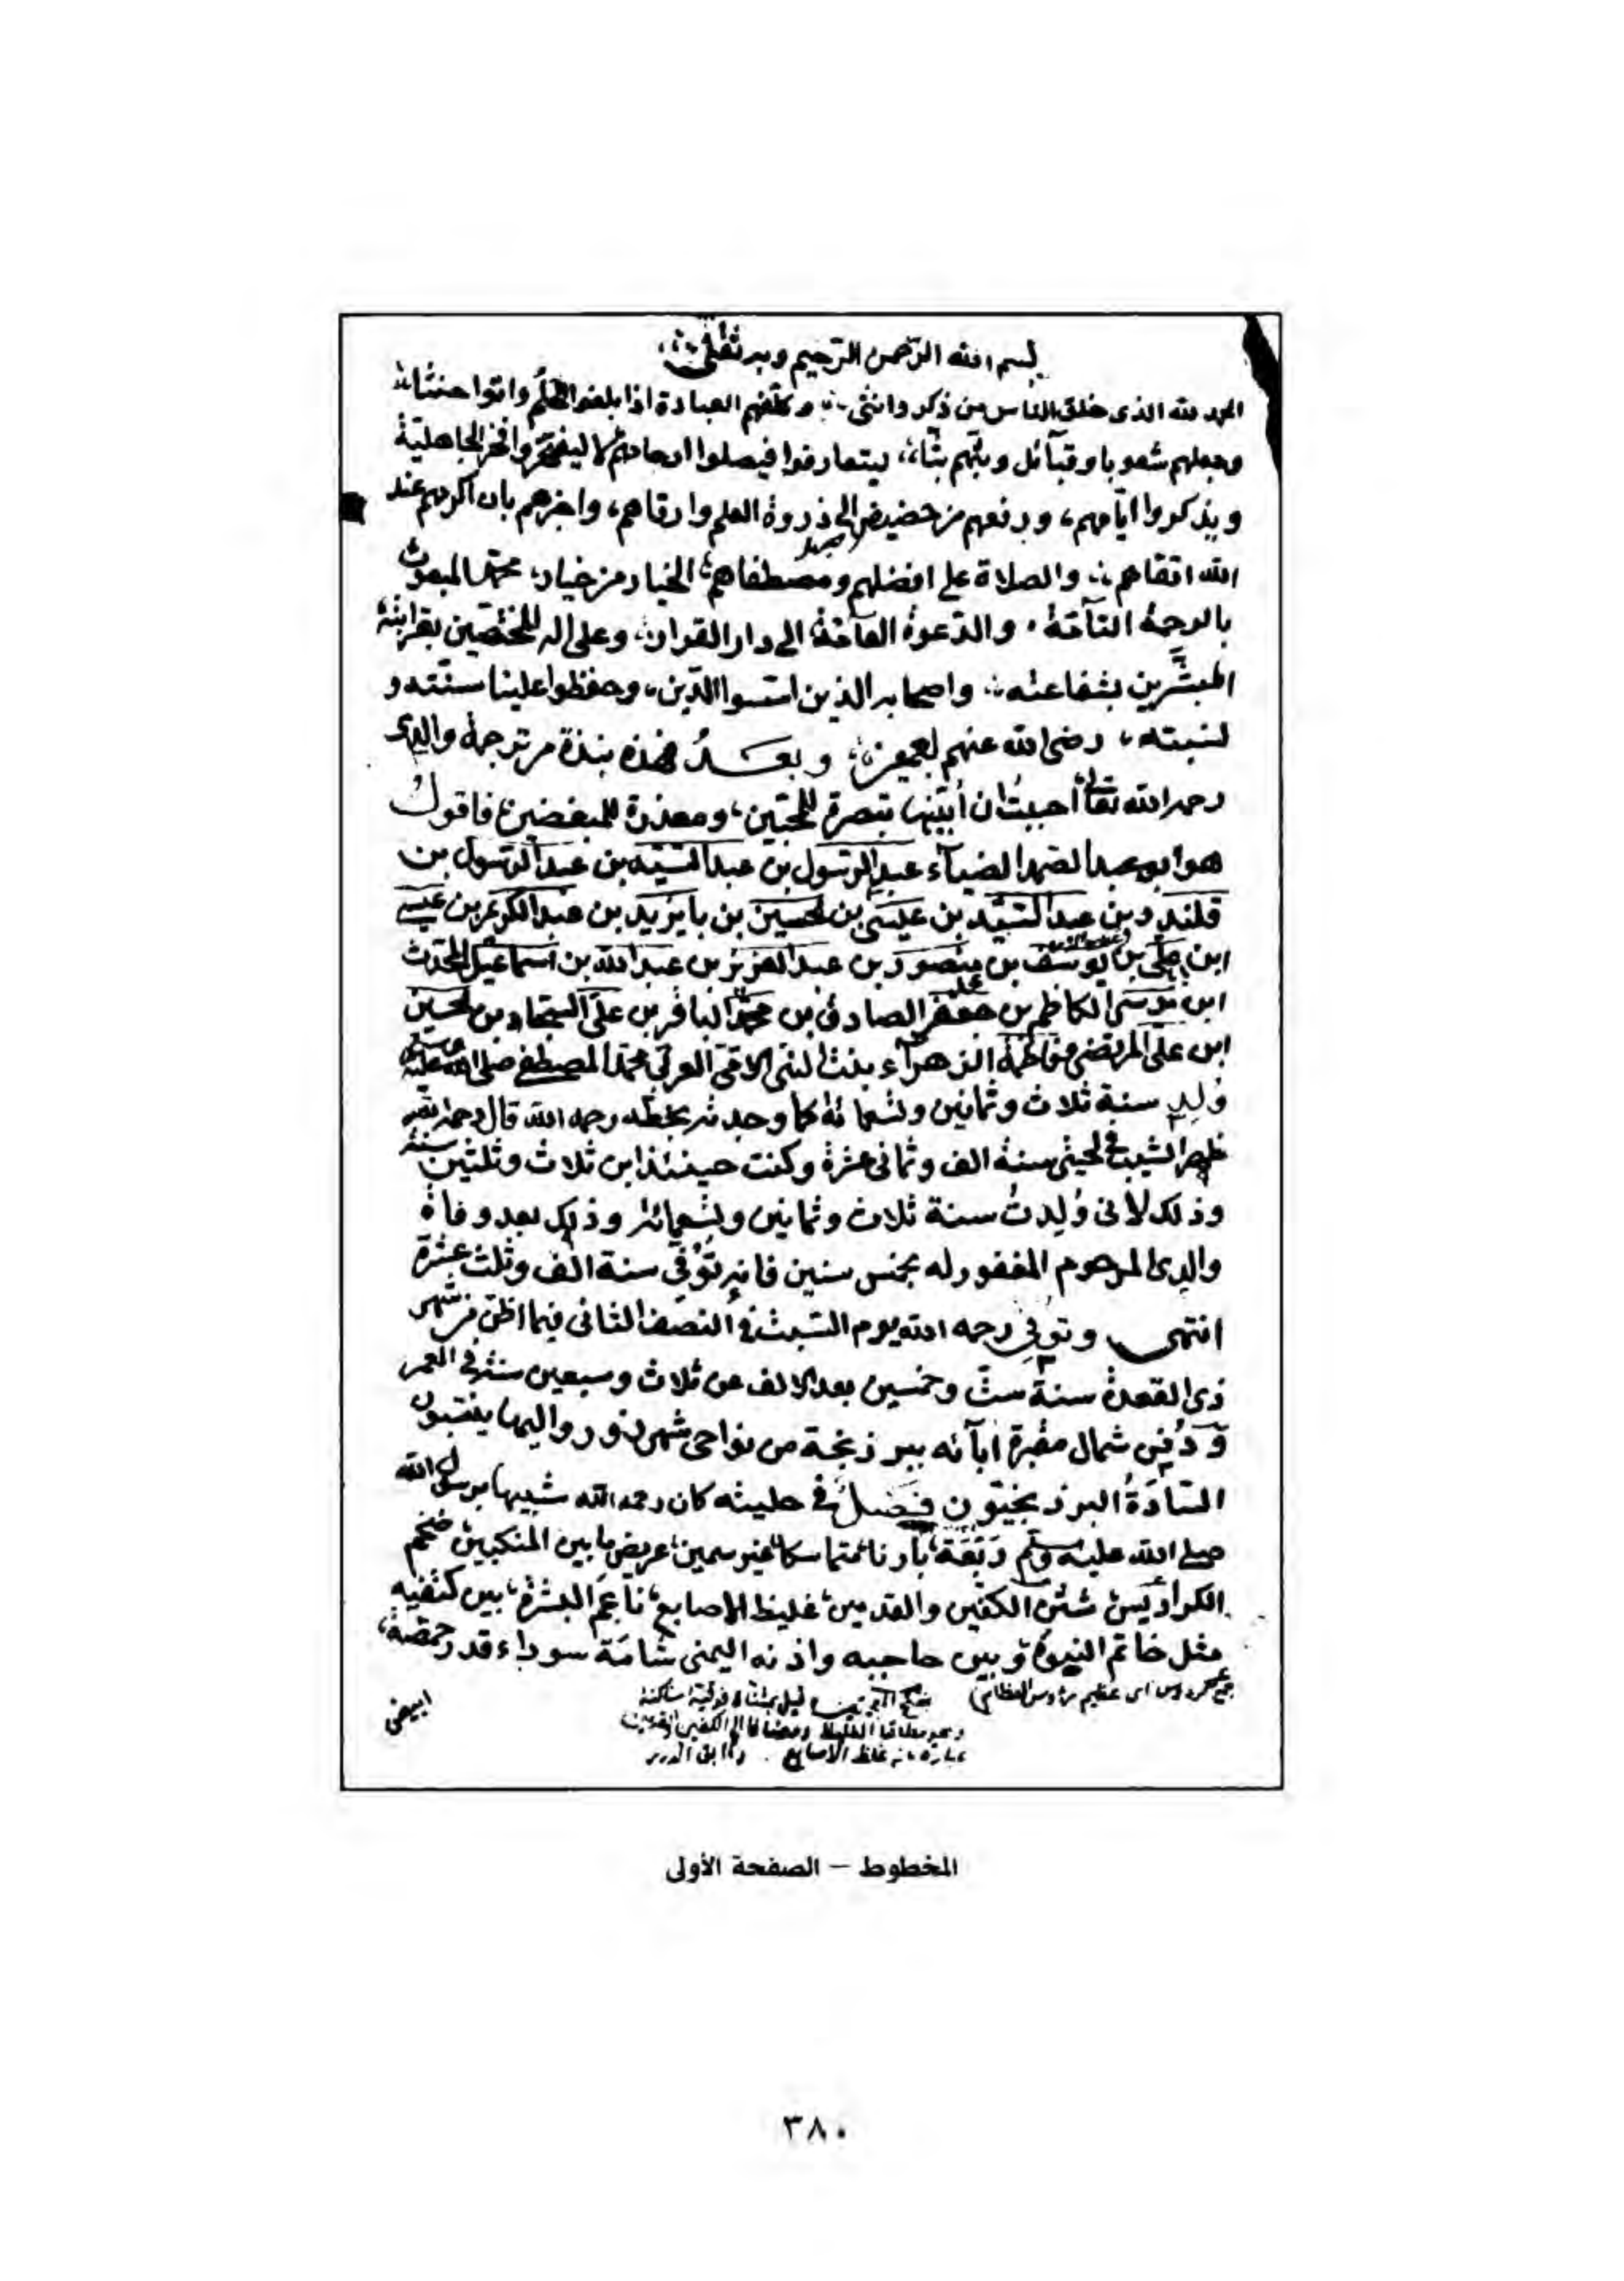 بسم الله الرحمن الرحيم وبه ثقتي
الحمد لله الذي خلق الناس من ذكر وانثى، وكلفهم العبادة اذا بلغوا الحلم
وجعلهم شعوبا وقبآئل وبثهم بثّا، ليتعارفوا فيصلوا ارحامهم لا ليفتخروا فخر الجاهلية
ويذكروا ايّامهم، ورفعهم من حضيض الى ذروة العلم وارقاهم، واخبرهم بان اكرمهم عند
الله اتقاهم، والصلاة على افضلهم ومصطفاهم، الخيار من خيار، محمد المبعوث
بالرحمة التآمّة، والدّعوة العآمّة، الى دار القرار، وعلى اله المختصّين بقرابته
المبشّرين بشفاعته، واصحابه الذين اسّسوا الدّين، وحفظوا علينا سنّته و
نسبته، رضي الله عنهم اجمعين، وبعد فهذه نبذة من ترجمة والدي
رحمه الله تعالى احببتُ ان أثبتها تبصرة للمحبّين، ومعذرة للمبغضين، فاقول
هو ابو عبد الصمد الضيآء عبد الرسول بن عبد السيّد بن عبد الرسول بن
قلندر بن عبد السيّد بن عيسى بن الحسين بن بايزيد بن عبد الكريم بن عيسى
ابن علي بن يوسف بن منصور بن عبد العزيز بن عبد الله بن اسماعيل المحدث
ابن موسى الكاظم بن جعفر الصادق بن محمد الباقر بن علي السجاد بن الحسين
ابن علي المرتضى وفاطمة الزهرآء بنت النبي الامّي العربي محمد المصطفى صلى الله عليه وسلم
وُلِد سنة ثلاث وثمانين وتسعمائة كما وجدته بخطّه رحمه الله قال رحمه الله
ظهر الشيب في لحيتي سنة الف وثماني عشرة وكنت حينئذ ابن ثلاث وثلثين سنة
وذلك لاني وُلدتُ سنة ثلاث وثمانين وتسعمائة وذلك بعد وفاة
والدي المرحوم المغفور له بخمس سنين فانه تُوُفّي سنة الف وثلث عشرة
انتهى وتوفي رحمه الله يوم السّبت في النصف الثاني فيما اظنّ من شهر
ذي القعدة سنة ستّ وخمسين بعد الالف عن ثلاث وسبعين سنة في العمر
وَدُفِن شمال مقبرة ابآئه ببرزنجة من نواحي شهرزور واليها ينتسبون
السّادَةُ البرزنجيّون فَصلٌ في حليته كان رحمه الله شبيها برسول الله
صلى الله عليه وسلم رَبْعَة، بادنا متماسكا، غير سمين، عريض ما بين المنكبين، ضخم
الكراديس، شثن الكفّين والقدمين، غليظ الاصابع، ناعم البشرة، بين كتفيه
مثل خاتم النبوة، وبين حاجبه واذنه اليمنى شامَة سوداء قدر حمّصة،
جمع كردوس اي عظيم رؤوس العظام
ابيض
المخطوط – الصفحة الأولى
٣٨٠